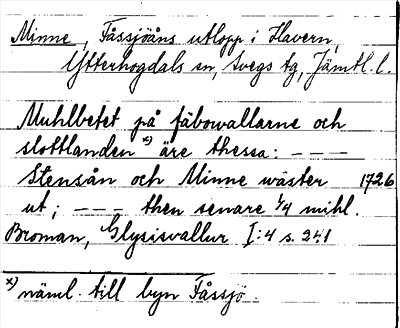 Minne, Fåssjöåns utlopp i Havern,
Ytterhogdals sn, Svegs tg, Jämtl. l.
Muhlbetet på fäbowallarne och
slottlanden x) äre thessa: – – –
Stensån och Minne wäster 1726
ut; – – – then senare 1/4 mihl.
Broman, Glysisvallur I:4 s. 241
x) näml. till byn Fåssjö.